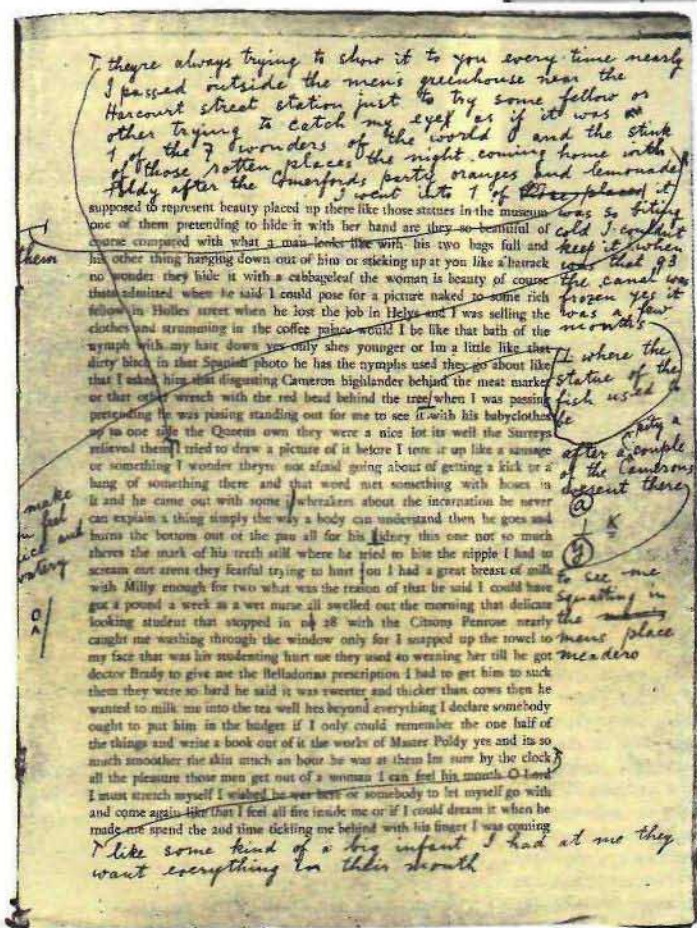 T theyre always trying to show it to you every time nearly
I passed outside the mens greenhouse near the
Harcourt street station just to try some fellow or
other trying to catch my eye as if it was
1 of the 7 wonders of the world O and the stink
of those rotten places the night coming home with
Poldy after the Comerfords party oranges and lemonade
I went into 1 of them it
was so biting
cold I couldnt
keep it when
was that 93
the canal was
frozen yes it
was a few
months
supposed to represent beauty placed up there like those statues in the museum
one of them pretending to hide it with her hand are they so beautiful of
course compared with what a man looks like with his two bags full and
his other thing hanging down out of him or sticking up at you like a hatrack
no wonder they hide it with a cabbageleaf the woman is beauty of course
thats admitted when he said I could pose for a picture naked to some rich
fellow in Holles street when he lost the job in Helys and I was selling the
clothes and strumming in the coffee palace would I be like that bath of the
nymph with my hair down yes only shes younger or Im a little like that
dirty bitch in that Spanish photo he has the nymphs used they go about like
that I asked him that disgusting Cameron highlander behind the meat market
or that other wretch with the red head behind the tree when I was passing
pretending he was pissing standing out for me to see it with his babyclothes
up to one side the Queens own they were a nice lot its well the Surreys
relieved them I tried to draw a picture of it before I tore it up like a sausage
or something I wonder theyre not afraid going about of getting a kick or a
bang of something there and that word met something with hoses in
it and he came out with some jawbreakers about the incarnation he never
can explain a thing simply the way a body can understand then he goes and
burns the bottom out of the pan all for his kidney this one not so much
theres the mark of his teeth still where he tried to bite the nipple I had to
scream out arent they fearful trying to hurt you I had a great breast of milk
with Milly enough for two what was the reason of that he said I could have
got a pound a week as a wet nurse all swelled out the morning that delicate
looking student that stopped in no 28 with the Citrons Penrose nearly
caught me washing through the window only for I snapped up the towel to
my face that was his studenting hurt me they used to weaning her till he got
doctor Brady to give me the Belladonna prescription I had to get him to suck
them they were so hard he said it was sweeter and thicker than cows then he
wanted to milk me into the tea well hes beyond everything I declare somebody
ought to put him in the budget if I only could remember the one half of
the things and write a book out of it the works of Master Poldy yes and its so
much smoother the skin much an hour he was at them Im sure by the clock
all the pleasure those men get out of a woman I can feel his mouth O Lord
I must stretch myself I wished he was here or somebody to let myself go with
and come again like that I feel all fire inside me or if I could dream it when he
made me spend the 2nd time tickling me behind with his finger I was coming
them
T where the
statue of the
fish used to
be
pity a
after a couple
of the Camerons
present there
to see me
squatting in
the
mens place
meadero
make
feel
and
watery
T like some kind of a big infant I had at me they
want everything in their mouth